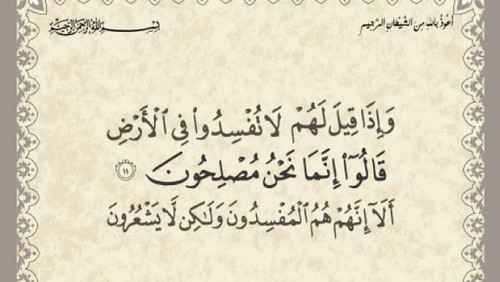 أعوذ بالله من الشيطان الرجيم
بسم الله الرحمن الرحيم
وَإِذَا قِيلَ لَهُمْ لَا تُفْسِدُوا۟ فِى ٱلْأَرْضِ
قَالُوٓا۟ إِنَّمَا نَحْنُ مُصْلِحُونَ ١١
أَلَآ إِنَّهُمْ هُمُ ٱلْمُفْسِدُونَ وَلَـٰكِن لَّا يَشْعُرُونَ